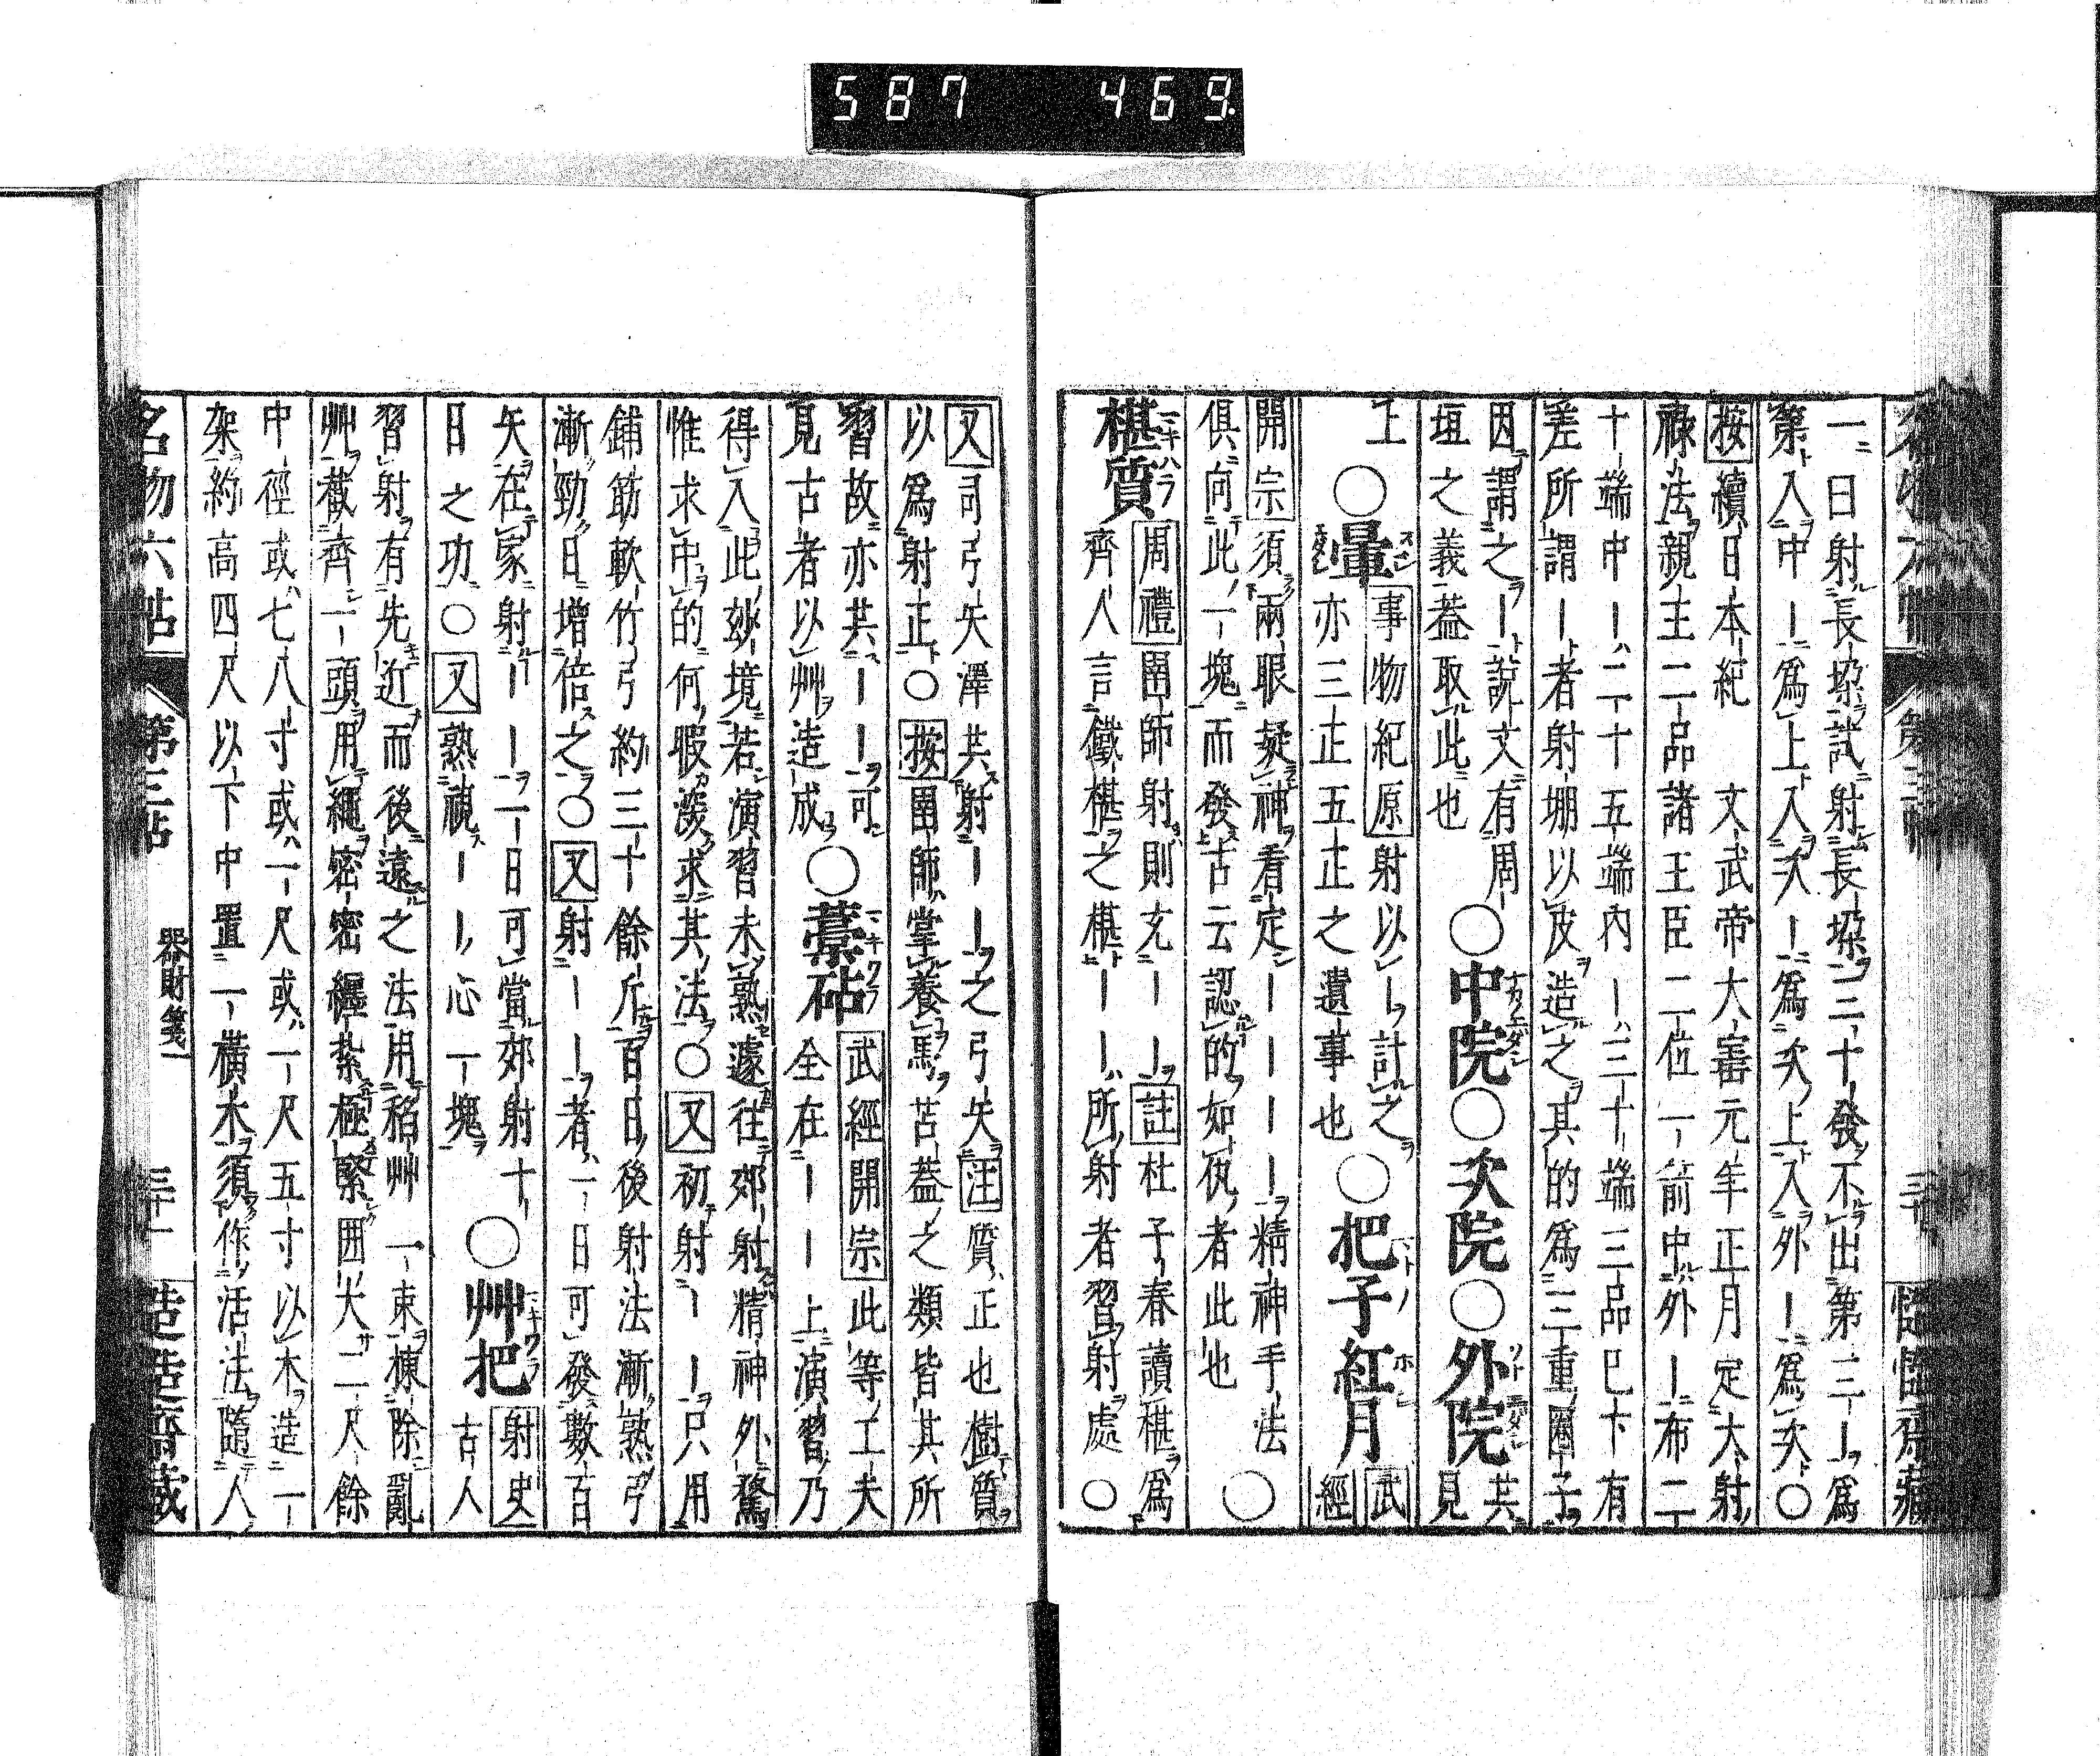 587 469
一曰射長垜試射長垜三十發不出第三〡爲
第入中〡爲上入次〡爲次上入外〡爲次○
按續日本紀 文武帝大寶元年正月定大射
祿法親王二品諸王臣二位一箭中外〡布二
十端中〡二十五端內〡三十端三品已下有
差所謂〡者射堋以皮造之其的爲三重圈子
因謂之〡說文有周
垣之義蓋取此也
○中院○次院○外院
共見
上
○暈
事物紀原射以〡計之
亦三正五正之遺事也
○把子紅月
武經
開宗須兩眼凝神看定〡〡〡〡精神手法
俱向此一塊而發古云認的如仇者此也
○
椹質
周禮圉師射則充〡〡註杜子春讀椹爲
齊人言鐵椹之椹〡〡所射者習射處○
又司弓矢澤共射〡〡之弓矢注質正也樹質
以爲射正○按圉師掌養馬苫蓋之類皆其所
習故亦共〡〡可
見古者以艸造成
○藁砧
武經開宗此等工夫
全在〡〡上演習乃
得入此妙境若演習未熟遽往郊射精神外騖
惟求中的何暇深求其法○又初射〡〡只用
鋪筋軟竹弓約三十餘斤百日後射法漸熟弓
漸勁日增倍之○又射〡〡者一日可發數百
矢在家射〡〡一日可當郊射十
日之功○又熟視〡〡心一塊
○艸把
射史
古人
習射有先近而後遠之法用稻艸一束揀除亂
艸截齊一頭用繩密密纏紮極緊囲大二尺餘
中徑或七八寸或一尺或一尺五寸以木造一
架約高四尺以下中置一橫木須作活法隨人
名物六帖 第三帖 器財箋一 三十一